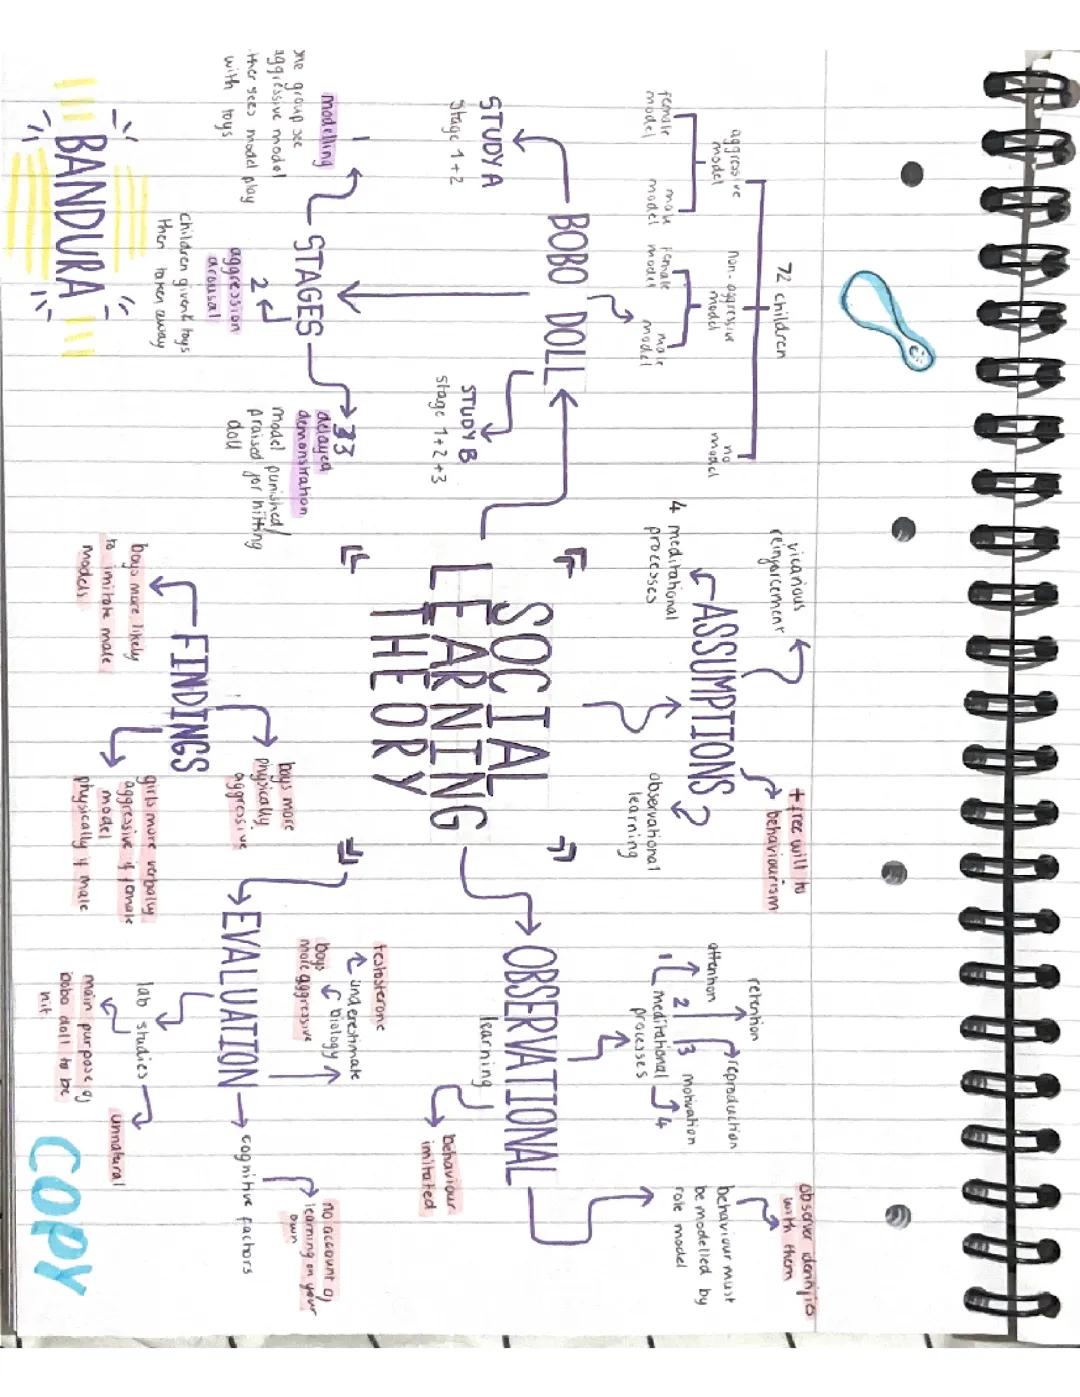 72 children
aggressive
model
non-aggressive
model
no
model
female
model
male
model
female
model
male
model
BOBO DOLL
STUDY A
Stage 1+2
STUDY B
stage 1+2+3
STAGES
1
modelling
one group see
aggressive model
other sees model play
with toys
2
aggression
arousal
children given toys
then taken away
3
delayed
demonstration
model punished/
praised for hitting
doll
BANDURA
SOCIAL
LEARNING
THEORY
ASSUMPTIONS
vicarious
reinforcement
4 meditational
processes
observational
learning
+ free will to
behaviourism
FINDINGS
boys more likely
to imitate male
models
boys more
physically
aggressive
girls more verbally
aggressive if female
model
physically if male
OBSERVATIONAL
learning
behaviour
imitated
meditational
processes
1
attention
2
retention
3
reproduction
4
motivation
behaviour must
be modelled by
role model
observer identifies
with them
EVALUATION
underestimate
biology
testosterone
boys
more aggressive
lab studies
main purpose of
bobo doll to be
hit
unnatural
cognitive factors
no account of
learning on your
own
COPY